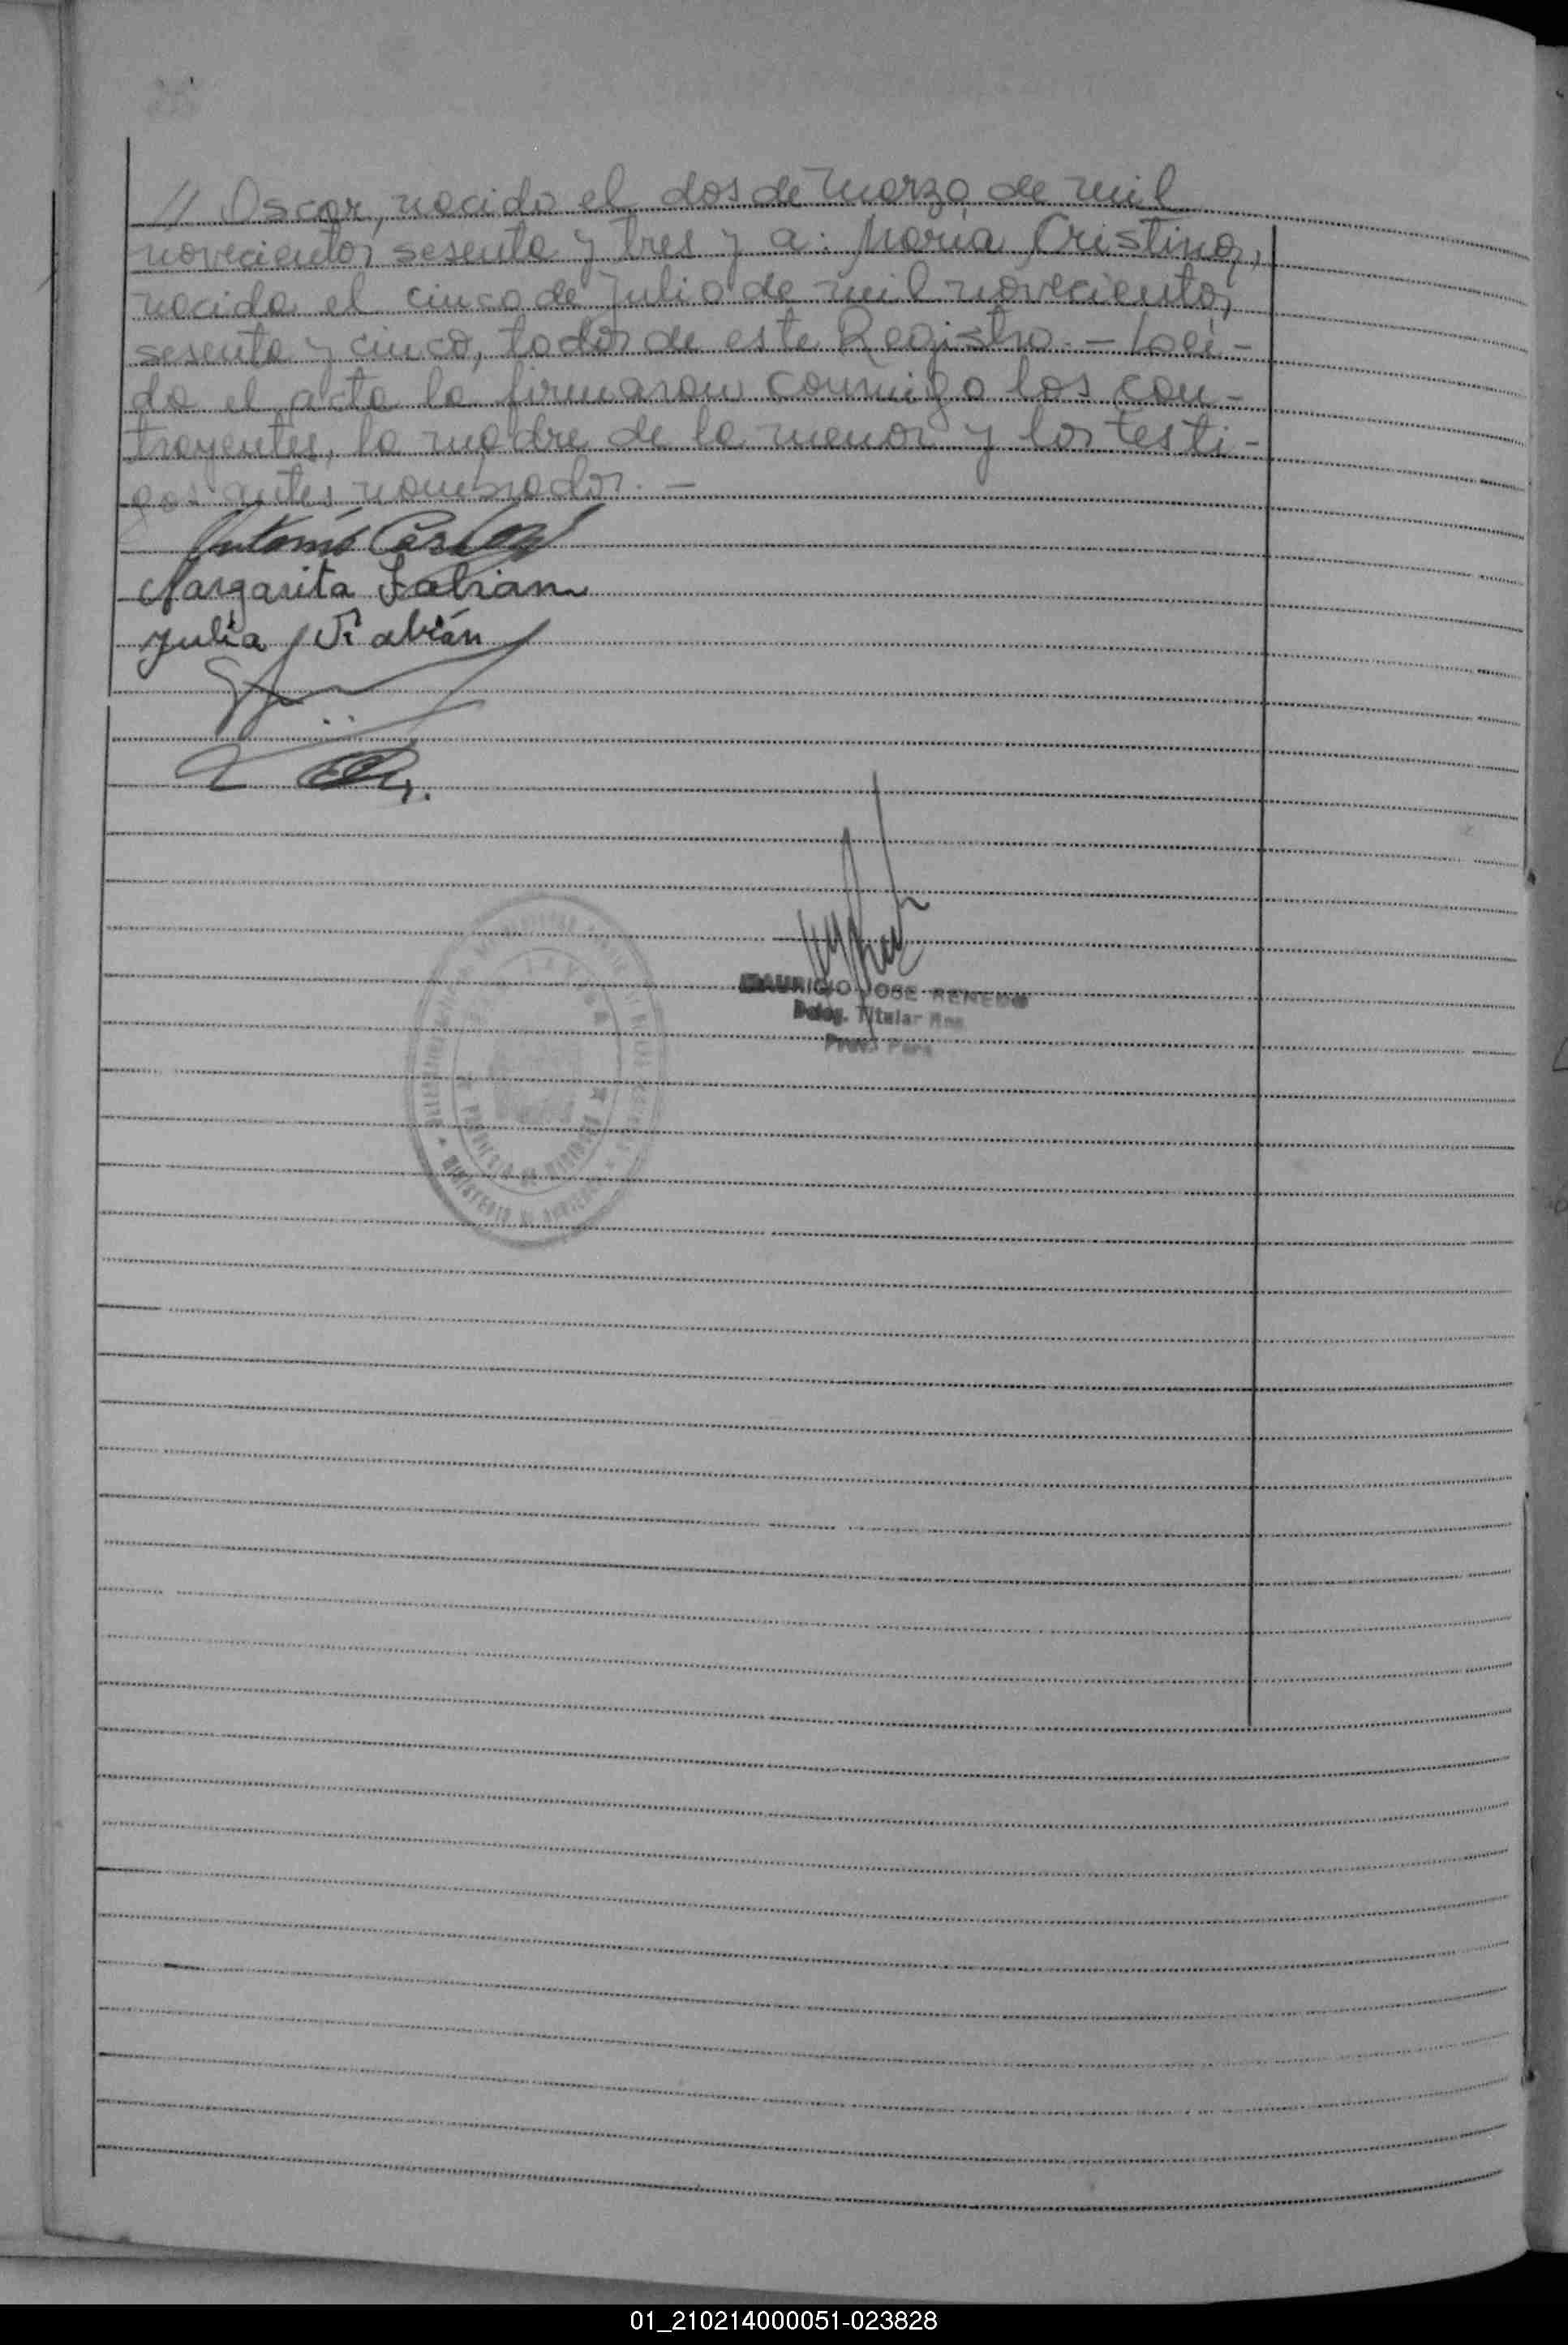 // Oscar, nacido el dos de Marzo de mil
novecientos sesenta y tres y a: María Cristina,
nacida el cinco de Julio de mil novecientos
sesenta y cinco, todos de este Registro.- Leí-
da el acta la firmaron conmigo los con-
trayentes, la madre de la menor y los testi-
gos antes nombrados. -
Antonio
Margarita Fabian
Julia Fabián
MAURICIO JOSE RENEDO
Deleg. Titular
MINISTERIO DE
PROVINCIA DE MISIONES
01_210214000051-023828